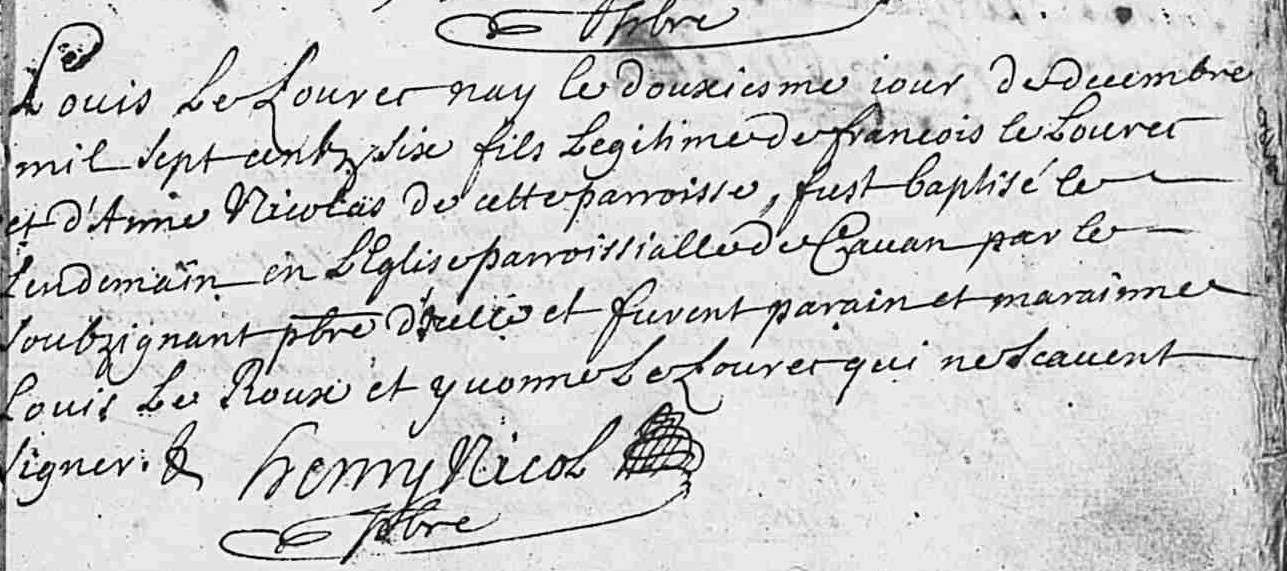 pbre
Louis Le Louvec nay le douxiesme iour de decembre
mil sept cents six fils Legitime de francois le Louvec
et d'Anne Nicolas de cette parroisse, fust baptisé le
lendemain en L'Eglise parroissialle de Cavan par le
soubzignant pbre d'icelle et furent parain et marainne
Louis Le Roux et yvonne Le Louvec qui ne scavent
signer. &
henry Nicol
pbre